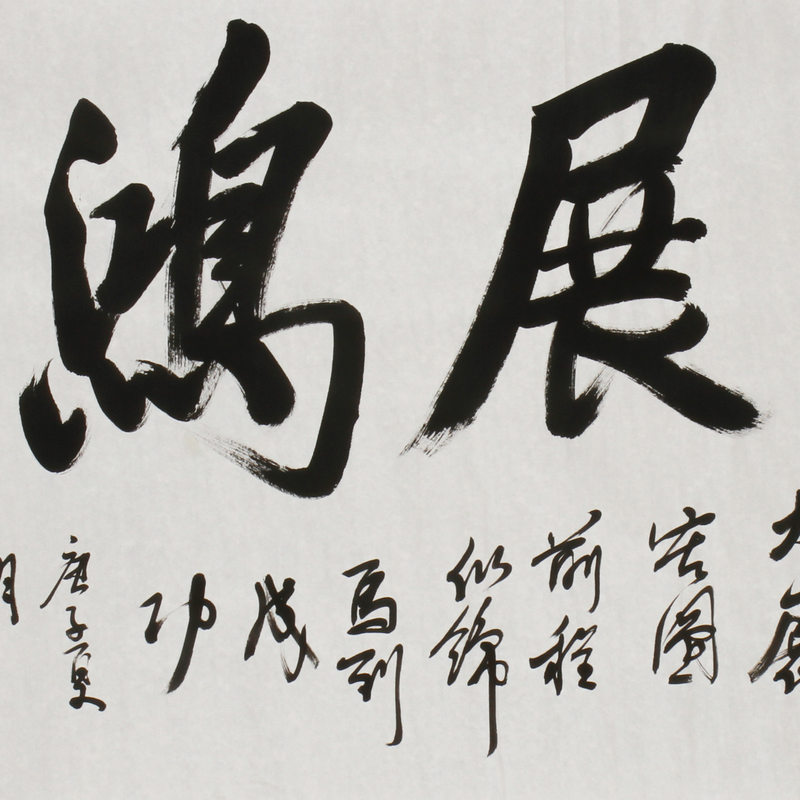 展鴻
大展
宏圖
前程
似錦
馬到
成
功
庚子夏